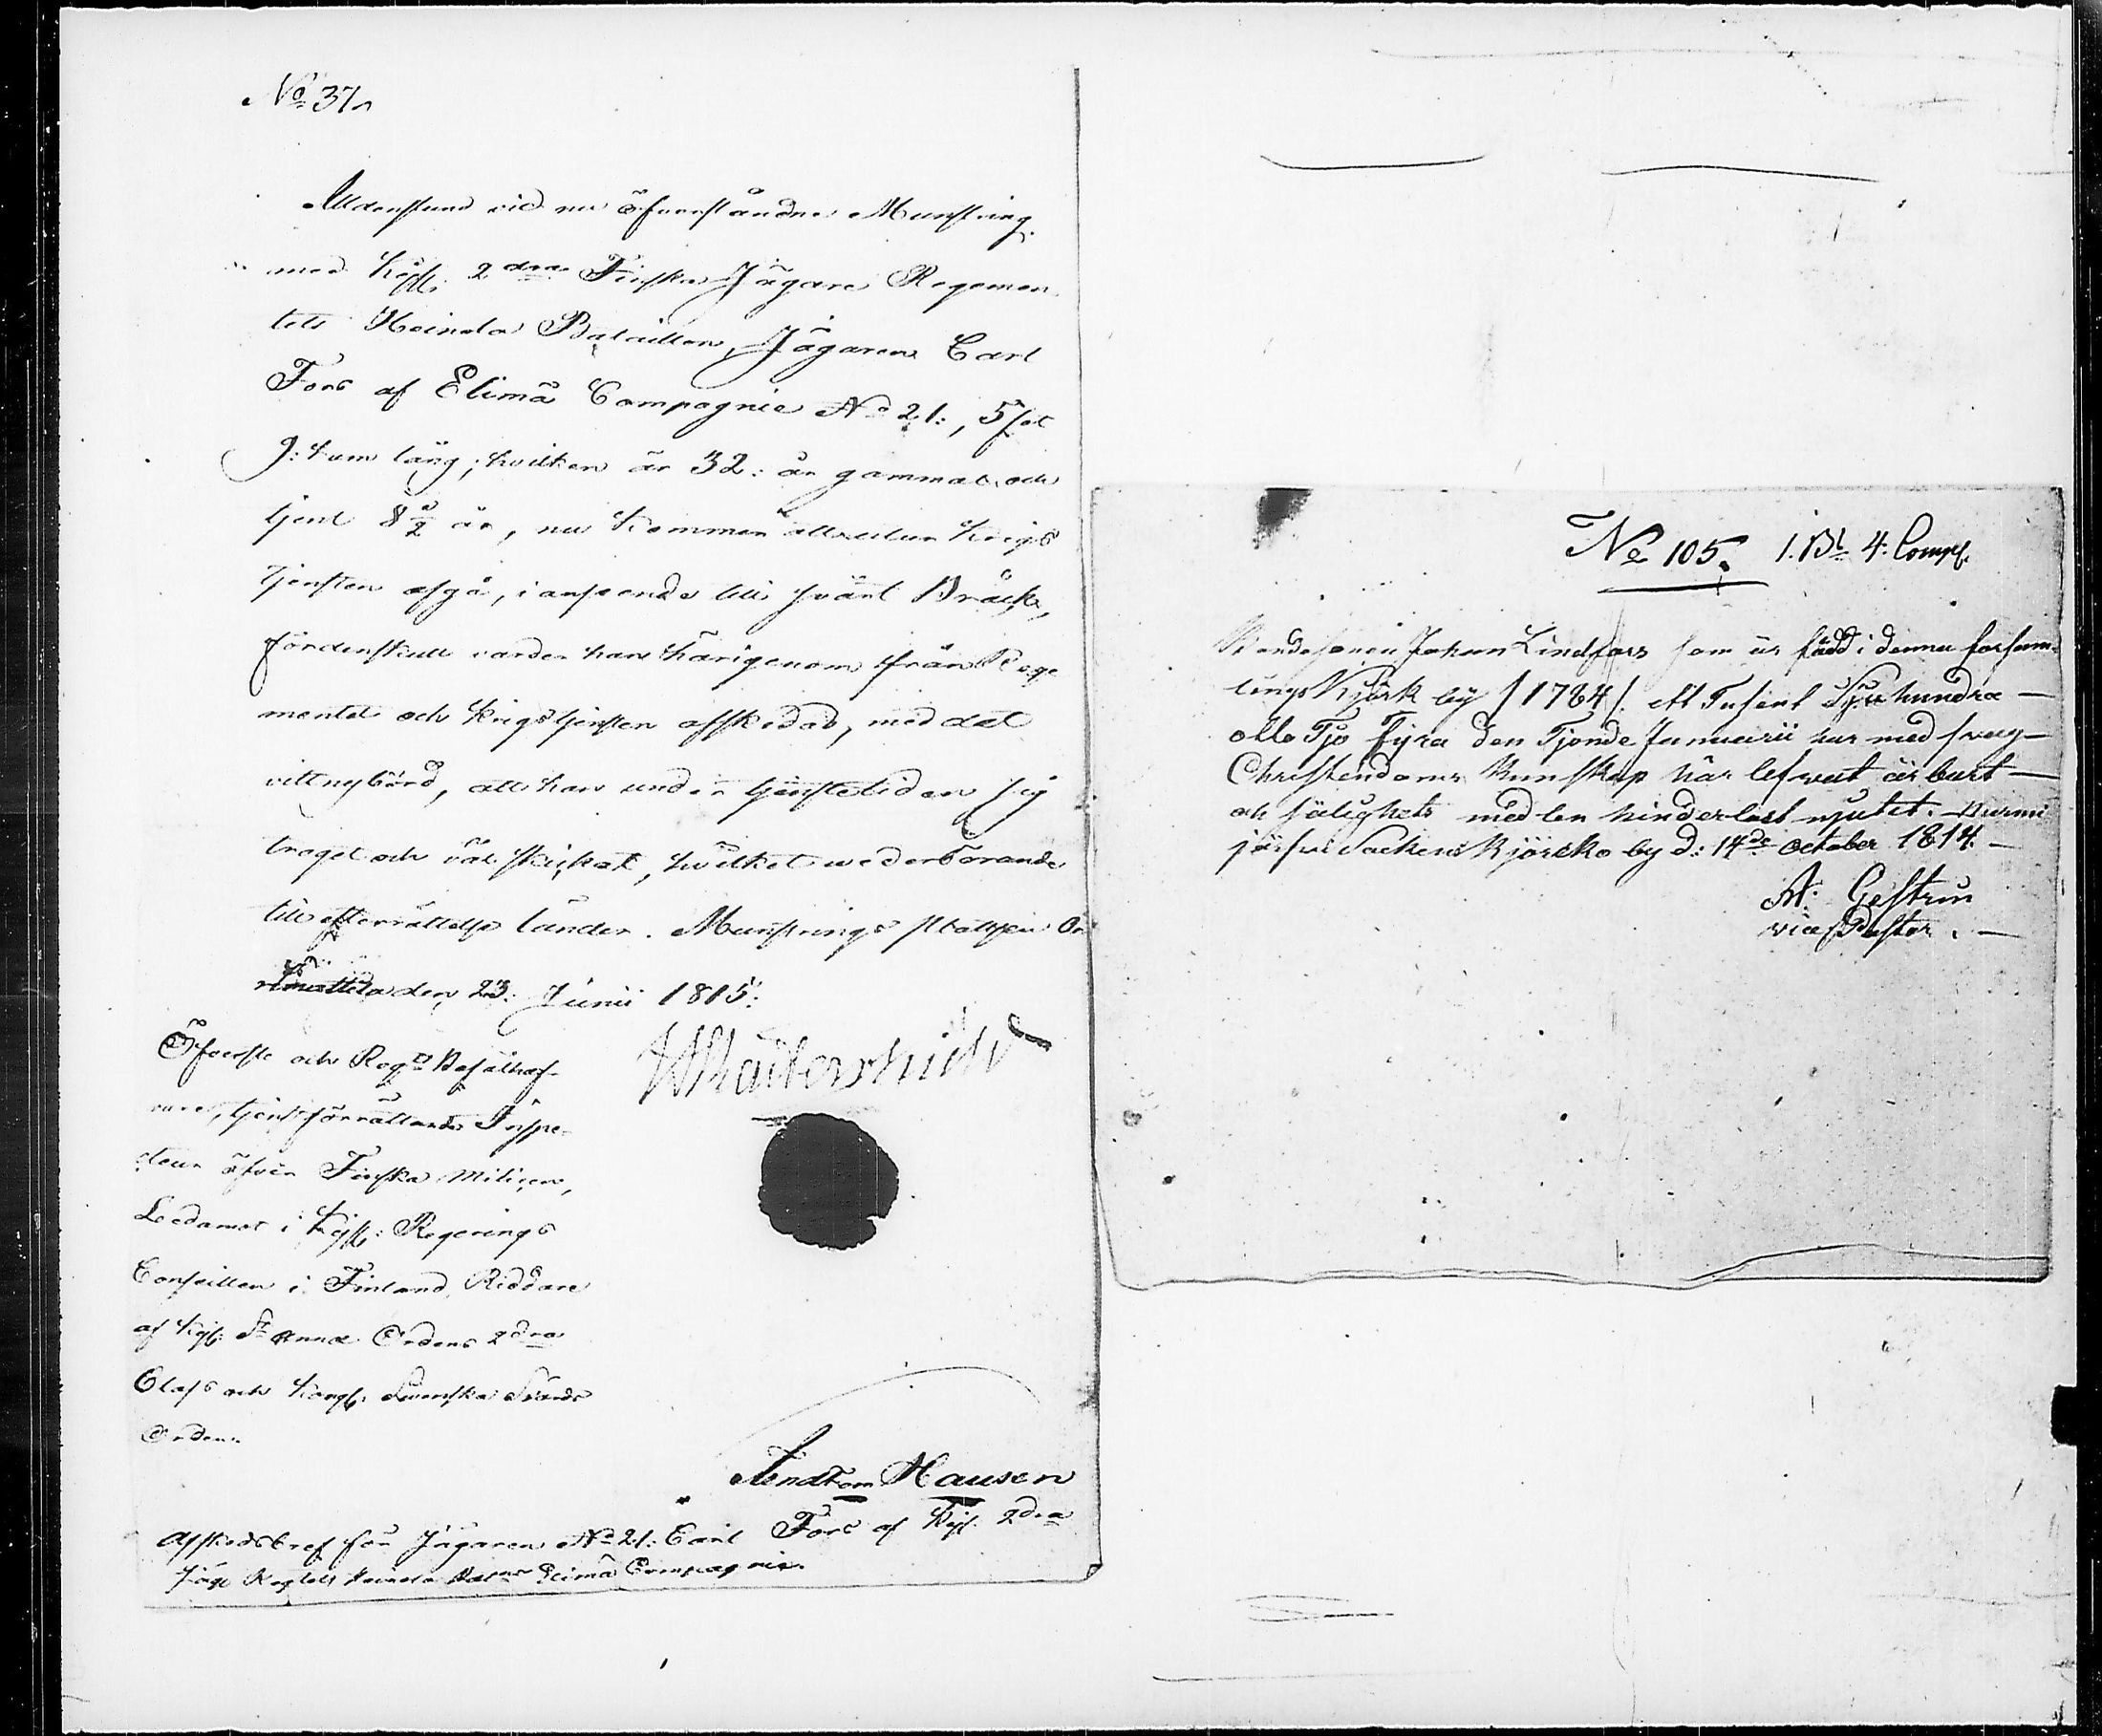 No 37
Alldenstund vid nu öfverståndne Munstring
med Kejsl. 2dra Finska Jägare Regemen
tets Heinola Bataillon, Jägaren Carl
Fors af Elimä Compagnie No 21:, 5 fot
9: tum lång; hvilken är 32: år gammal och
tjent 8 1/2 år, nu kommer att utur Krigs
tjensten afgå, i anseende till svårt Bråck,
fördenskull varder han härigenom från Rege
mentet och Krigstjensten afskedad, med det
vittnesbörd, att han under tjenstetiden sig
troget och väl skickat, hvilket wederbörande
till efterrättelse länder. Munstrings platsen Or
den 23: Junii 1815:
Öfverste och Regts Befälhaf-
vare, tjenstförrättande Inspe-
cteur öfver Finska Milicen,
Ledamot i Kejsl: Regerings
Conseillen i Finland, Riddare
af Kejs: St Annæ Ordens 2dra
Class och Kongl. Swenska Svärds
Orden.
Arndt von Hausen
Afskedsbref för Jägaren No 21: Carl Fors af Kejs. 2dra
Jäge Regtets Heinola Batns Elimä Compagnie.
No 105. 1. Bt 4: Comp.
Bondesonen Johan Lindfors som är född i denna församl
lings by / 1784 /. ett Tusent Sjuhundra —
otta Tjo Fyra den Tjonde Januarii har med svag —
Christendoms Kunskap här lefvat ärbart —
och salighets medlen hinderlöst njutit. Nurmi
järfvi Sockens by d: 14de October 1814. —
A. Gestrin
vice Pastor. —